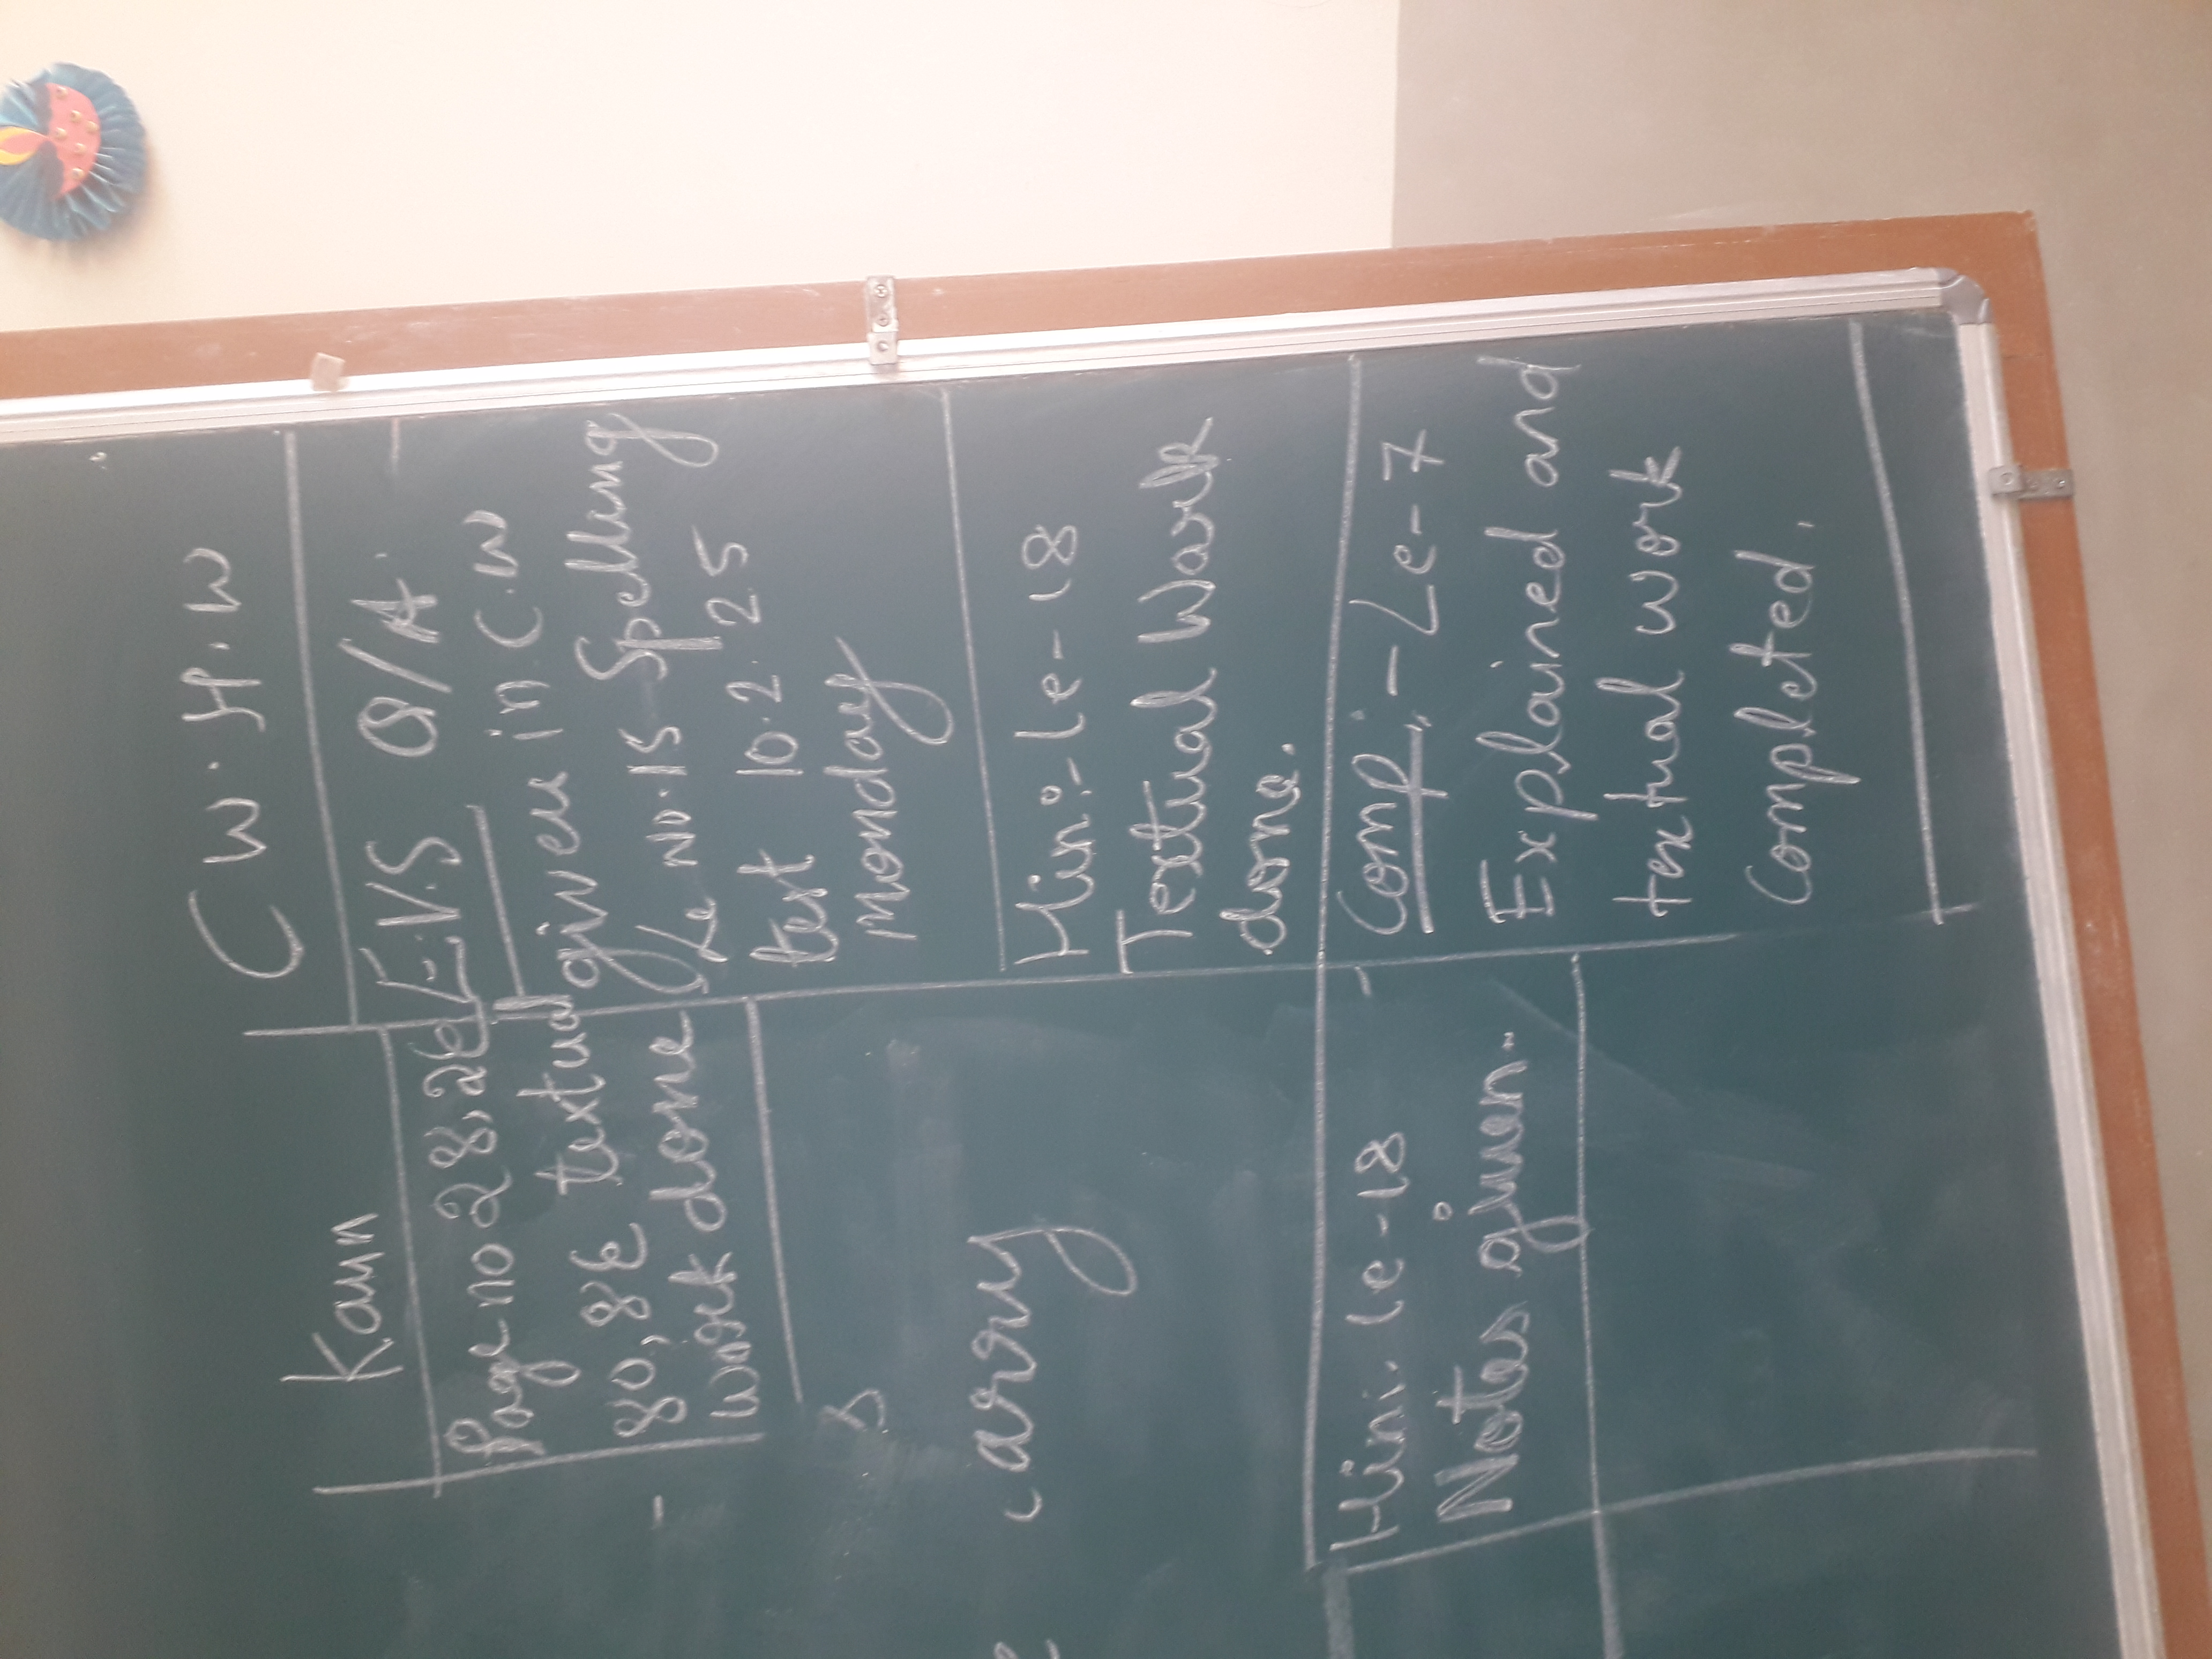 C W. H. W
Kann
Page no 28, 2E
80, 8E textual
work done
E.V.S Q/A.
given in C.W
Le No. 15 Spelling
test 10.2.25
monday
Hin:- Le - 18
Textual Work
done.
Comp:- Le-7
Explained and
textual work
Completed.
Hin. Le-18
Notes given.
arry